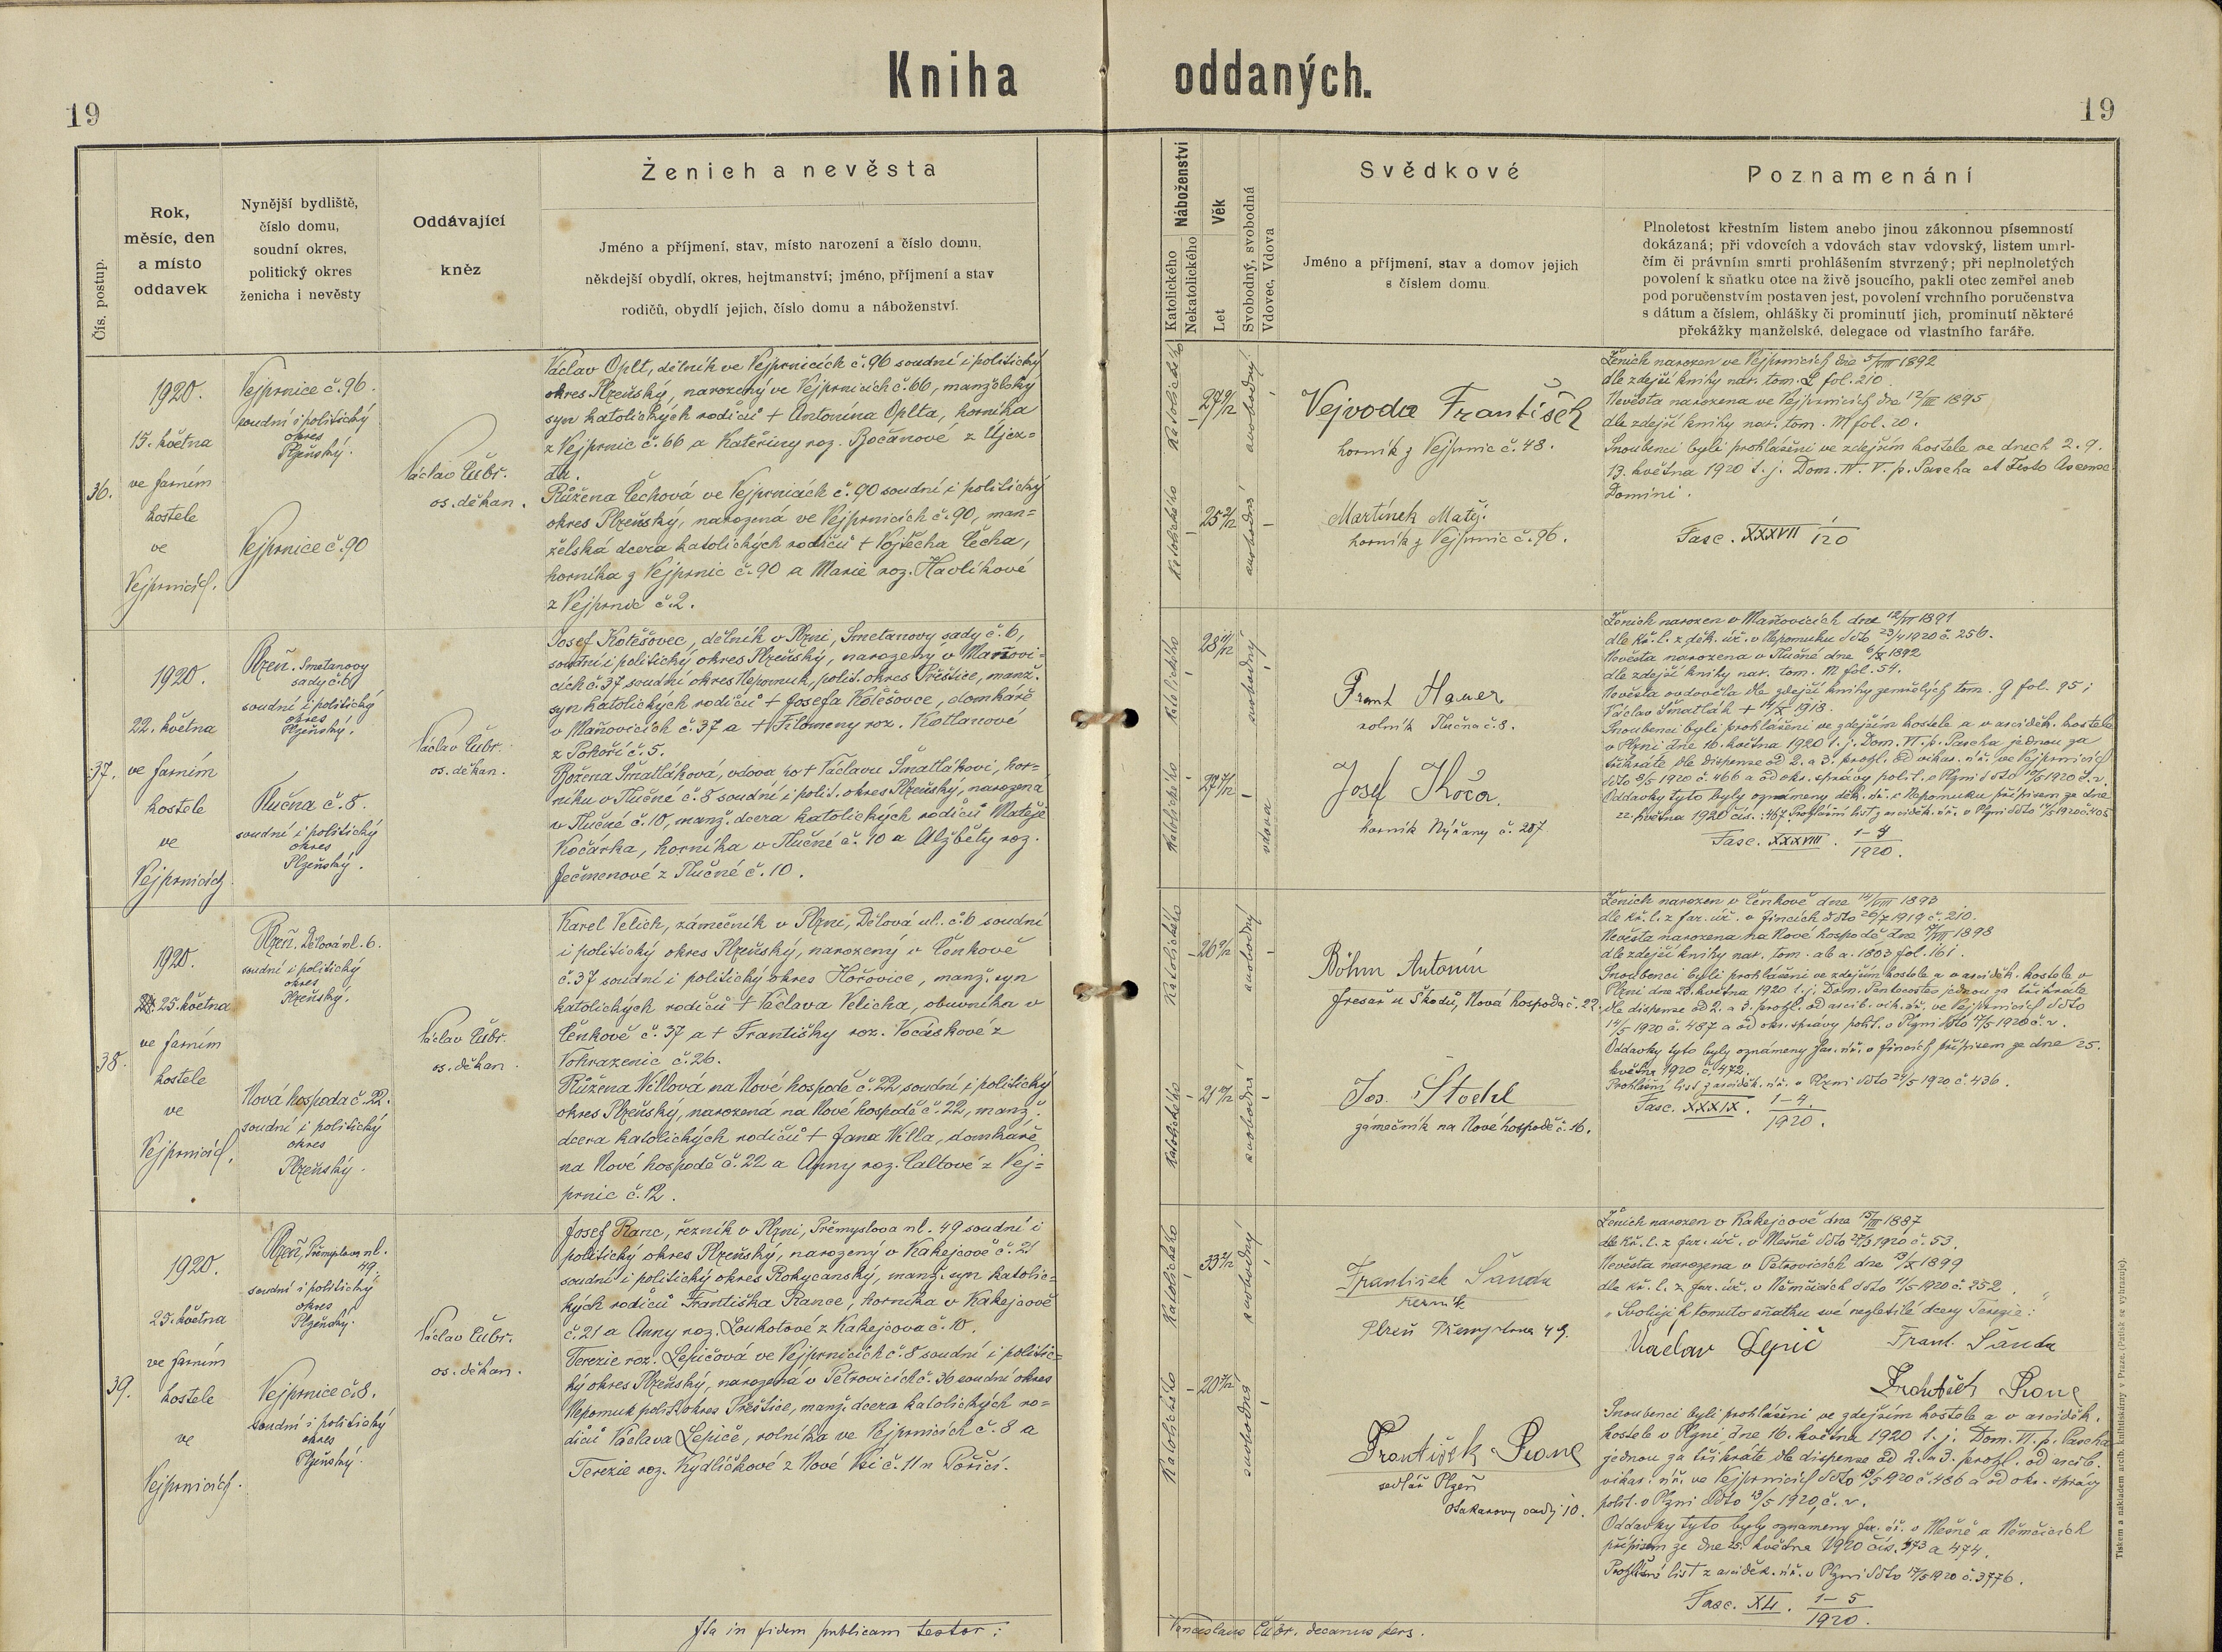 Kniha oddaných.
19
19
Čís. postup.
Rok,
měsíc, den
a místo
oddavek
Nynější bydliště,
číslo domu,
soudní okres,
politický okres
ženicha i nevěsty
Oddávající
kněz
Ženich a nevěsta
Jméno a příjmení, stav, místo narození a číslo domu,
někdejší obydlí, okres, hejtmanství; jméno, příjmení a stav
rodičů, obydlí jejich, číslo domu a náboženství.
Náboženství
Katolického
Nekatolického
Věk
Let
Svobodný, svobodná
Vdovec, Vdova
Svědkové
Jméno a příjmení, stav a domov jejich
s číslem domu.
Poznamenání
Plnoletost křestním listem anebo jinou zákonnou písemností
dokázaná; při vdovcích a vdovách stav vdovský, listem umrl-
čím či právním smrti prohlášením stvrzený; při neplnoletých
povolení k sňatku otce na živě jsoucího, pakli otec zemřel aneb
pod poručenstvím postaven jest, povolení vrchního poručenstva
s dátum a číslem, ohlášky či prominutí jich, prominutí některé
překážky manželské, delegace od vlastního faráře.
36.
1920.
15. května
ve farním
kostele
ve
Vejprnicích.
Vejprnice č. 96.
soudní i politický
okres
Plzeňský.
Vejprnice č. 90
Václav Čubr.
os. děkan.
Václav Oplt, dělník ve Vejprnicích č. 96 soudní i politický
okres Plzeňský, narozený ve Vejprnicích č. 66, manželský
syn katolických rodičů + Antonína Oplta, horníka
z Vejprnic č. 66 a Kateřiny roz. Bočanové z Újez=
da.
Růžena Čechová ve Vejprnicích č. 90 soudní i politický
okres Plzeňský, narozená ve Vejprnicích č. 90, man=
želská dcera katolických rodičů + Vojtěcha Čecha,
horníka z Vejprnic č. 90 a Marie roz. Havlíkové
z Vejprnic č. 2.
Katolického
27 9/12
svobodný
Katolického
25 2/12
svobodná
Vejvoda František
horník z Vejprnic č. 48.
Martínek Matěj.
horník z Vejprnic č. 96.
Ženich narozen ve Vejprnicích dne 5/VIII 1892
dle zdejší knihy nar. tom. L fol. 210.
Nevěsta narozena ve Vejprnicích dne 12/III 1895
dle zdejší knihy nar. tom. M fol. 20.
Snoubenci byli prohlášeni ve zdejším kostele ve dnech 2. 9.
13. května 1920 t. j. Dom. IV. V. p. Pascha et Festo Ascens.
Domini.
Fasc. XXXVII 1/20
37.
1920.
22. května
ve farním
kostele
ve
Vejprnicích
Plzeň. Smetanovy
sady č. 6
soudní i politický
okres
Plzeňský.
Tlučna č. 8.
soudní i politický
okres
Plzeňský.
Václav Čubr.
os. děkan.
Josef Kotěšovec, dělník v Plzni, Smetanovy sady č. 6,
soudní i politický okres Plzeňský, narozený v Maňovi=
cích č. 37 soudní okres Nepomuk, polit. okres Přeštice, manž.
syn katolických rodičů + Josefa Kotěšovce, domkáře
v Maňovicích č. 37 a + Filomeny roz. Kotlanové
z Pohoří č. 5.
Božena Šmatláková, vdova po + Václavu Šmatlákovi, hor=
níku v Tlučné č. 8 soudní i polit. okres Plzeňský, narozena
v Tlučné č. 10, manž. dcera katolických rodičů Matěje
Kočárka, horníka v Tlučné č. 10 a Alžběty roz.
Ječmenové z Tlučné č. 10.
Katolického
28 11/12
svobodný
Katolického
27 7/12
vdova
Frant Hauer
rolník Tlučna č. 8.
Josef Kočá.
horník Nýřany č. 207
Ženich narozen v Maňovicích dne 12/VI 1891
dle kř. l. z děk. úř. v Nepomuku ddto 23/4 1920 č. 256.
Nevěsta narozena v Tlučné dne 6/X 1892
dle zdejší knihy nar. tom. M fol. 54.
Nevěsta ovdověla dle zdejší knihy zemřelých tom. G fol. 95;
Václav Šmatlák + 14/X 1918.
Snoubenci byli prohlášeni ve zdejším kostele a v arciděk. kostele
v Plzni dne 16. května 1920 t. j. Dom. VI. p. Pascha jednou za
třikráte dle dispense od 2. a 3. prohl. od vikar. úř. ve Vejprnicích
Oddavky tyto byly oznámeny děk. úř. v Nepomuku přípisem ze dne
22. května 1920 čís.: 467
Fasc. XXXVIII. 1-4/1920.
38.
1920.
25. května
ve farním
kostele
ve
Vejprnicích.
Plzeň. Dělová ul. 6.
soudní i politický
okres
Plzeňský.
Nová hospoda č. 22.
soudní i politický
okres
Plzeňský.
Václav Čubr.
os. děkan.
Karel Velich, zámečník v Plzni, Dělová ul. č. 6 soudní
i politický okres Plzeňský, narozený v Čenkově
č. 37 soudní i politický okres Hořovice, manž. syn
katolických rodičů + Václava Velicha, obuvníka v
Čenkově č. 37 a + Františky roz. Vocáskové z
Vohrazenic č. 26.
Růžena Willová na Nové hospodě č. 22 soudní i politický
okres Plzeňský, narozená na Nové hospodě č. 22, manž.
dcera katolických rodičů + Jana Willa, domkáře
na Nové hospodě č. 22 a Anny roz. Caltové z Vej=
prnic č. 12.
Katolického
26 9/12
svobodný
Katolického
svobodná
Böhm Antonín
fresař u Škodů, Nová hospoda č. 22.
Jos. Štochl
zámečník na Nové hospodě č. 16.
Ženich narozen v Čenkově dne 14/VIII 1893
dle kř. l. z far. úř. v Jincích ddto 26/X 1919 č. 210.
Nevěsta narozena na Nové hospodě dne 17/XII 1898
dle zdejší knihy nar. tom. ab a. 1803 fol. 161.
Snoubenci byli prohlášeni ve zdejším kostele a v arciděk. kostele v
Plzni dne 23. května 1920 t. j. Dom. Pentecostes jednou za třikráte
dle dispense od 2. a 3. prohl. od arcib. vik. úř. ve Vejprnicích ddto
14/5 1920 č. 487 a od okr. správy polit. v Plzni ddto 17/5 1920 č. v.
Oddavky tyto byly oznámeny far. úř. v Jincích přípisem ze dne 25.
května 1920 č. 472.
Prohlášní list z arciděk. úř. v Plzni ddto 24/5 1920 č. 436.
Fasc. XXXIX. 1-4./1920.
39.
1920.
25. května
ve farním
kostele
ve
Vejprnicích.
Plzeň, Přemyslova ul.
49.
soudní i politický
okres
Plzeňský.
Vejprnice č. 8.
soudní i politický
okres
Plzeňský.
Václav Čubr.
os. děkan.
Josef Ranc, řezník v Plzni, Přemyslova ul. 49 soudní i
politický okres Plzeňský, narozený v Kakejcově č. 21
soudní i politický okres Rokycanský, manž. syn katolic=
kých rodičů Františka Rance, horníka v Kakejcově
č. 21 a Anny roz. Loukotové z Kakejcova č. 10.
Terezie roz. Lepičová ve Vejprnicích č. 8 soudní i politic=
ký okres Plzeňský, narozená v Petrovicích č. 36 soudní okres
Nepomuk polit. okres Přeštice, manž. dcera katolických ro=
dičů Václava Lepiče, rolníka ve Vejprnicích č. 8 a
Terezie roz. Kydlíčkové z Nové Vsi č. 11 n Poříčí.
Katolického
33 2/12
svobodný
Katolického
20 7/12
svobodná
František Šanda
řezník
Plzeň Přemyslova 49.
František Ranc
sedlář Plzeň
Otakarovy sady 10.
Ženich narozen v Kakejcově dne 15/III 1887
dle kř. l. z far. úř. v Mešně ddto 27/3 1920 č. 53.
Nevěsta narozena v Petrovicích dne 13/X 1899
dle kř. l. z far. úř. v Němčicích ddto 11/5 1920 č. 252.
„Svoluji k tomuto sňatku své nezletilé dcery Terezie:"
Václav Lepič Frant. Šanda
František Ranc
Snoubenci byli prohlášeni ve zdejším kostele a v arciděk.
kostele v Plzni dne 16. května 1920 t. j. Dom. VI. p. Pascha
jednou za třikráte dle dispense od 2. a 3. prohl. od arcib.
vikar. úř. ve Vejprnicích ddto 13/5 1920 č. 486 a od okr. správy
polit. v Plzni ddto 13/5 1920, č. v.
Oddavky tyto byly oznámeny far. úř. v Mešně a Němčicích
přípisem ze dne 25. května 1920 čís. 473 a 474.
Prohlášní list z arciděk. úř. v Plzni ddto 17/5 1920 č. 3776.
Fasc. XL. 1-5/1920.
Ita in fidem publicam testor:
Venceslaus Čubr. decanus pers.
Tiskem a nákladem arcib. knihtiskárny v Praze. (Patisk se vyhrazuje).